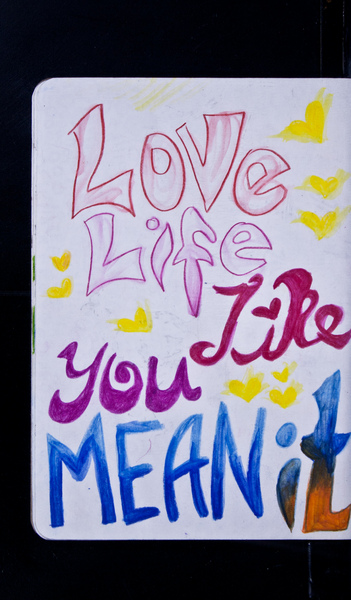 Love
Life
Like
You
MEAN it